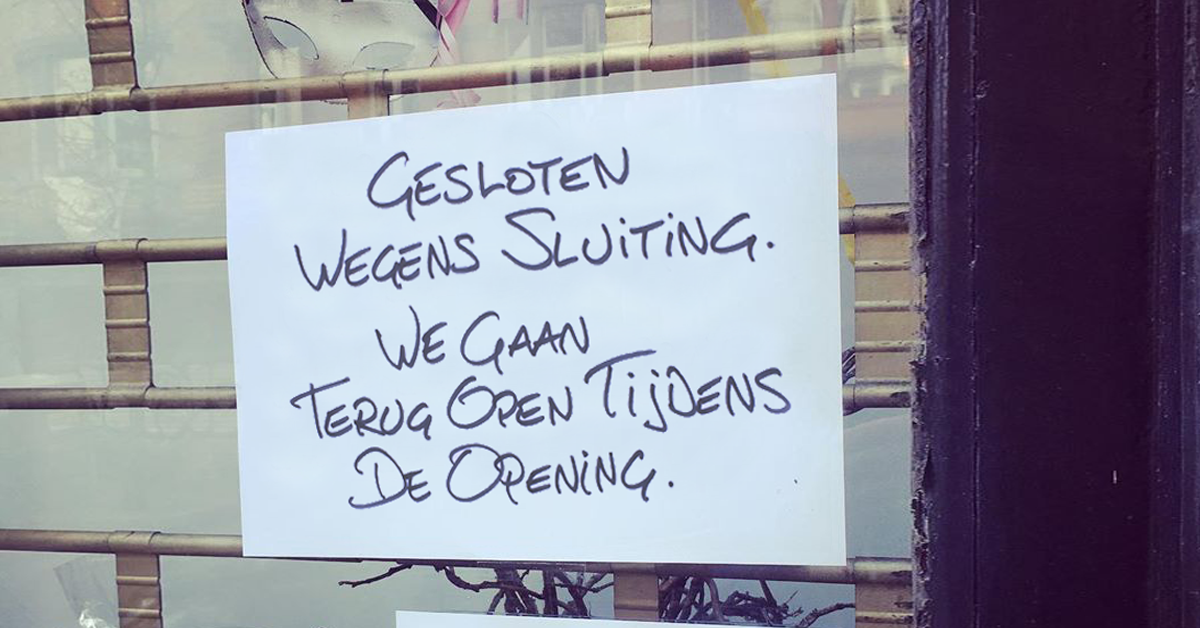 GESLOTEN
WEGENS SLUiTiNG.
WE GAAN
TERUG OPEN TijDENS
DE OPENiNG.